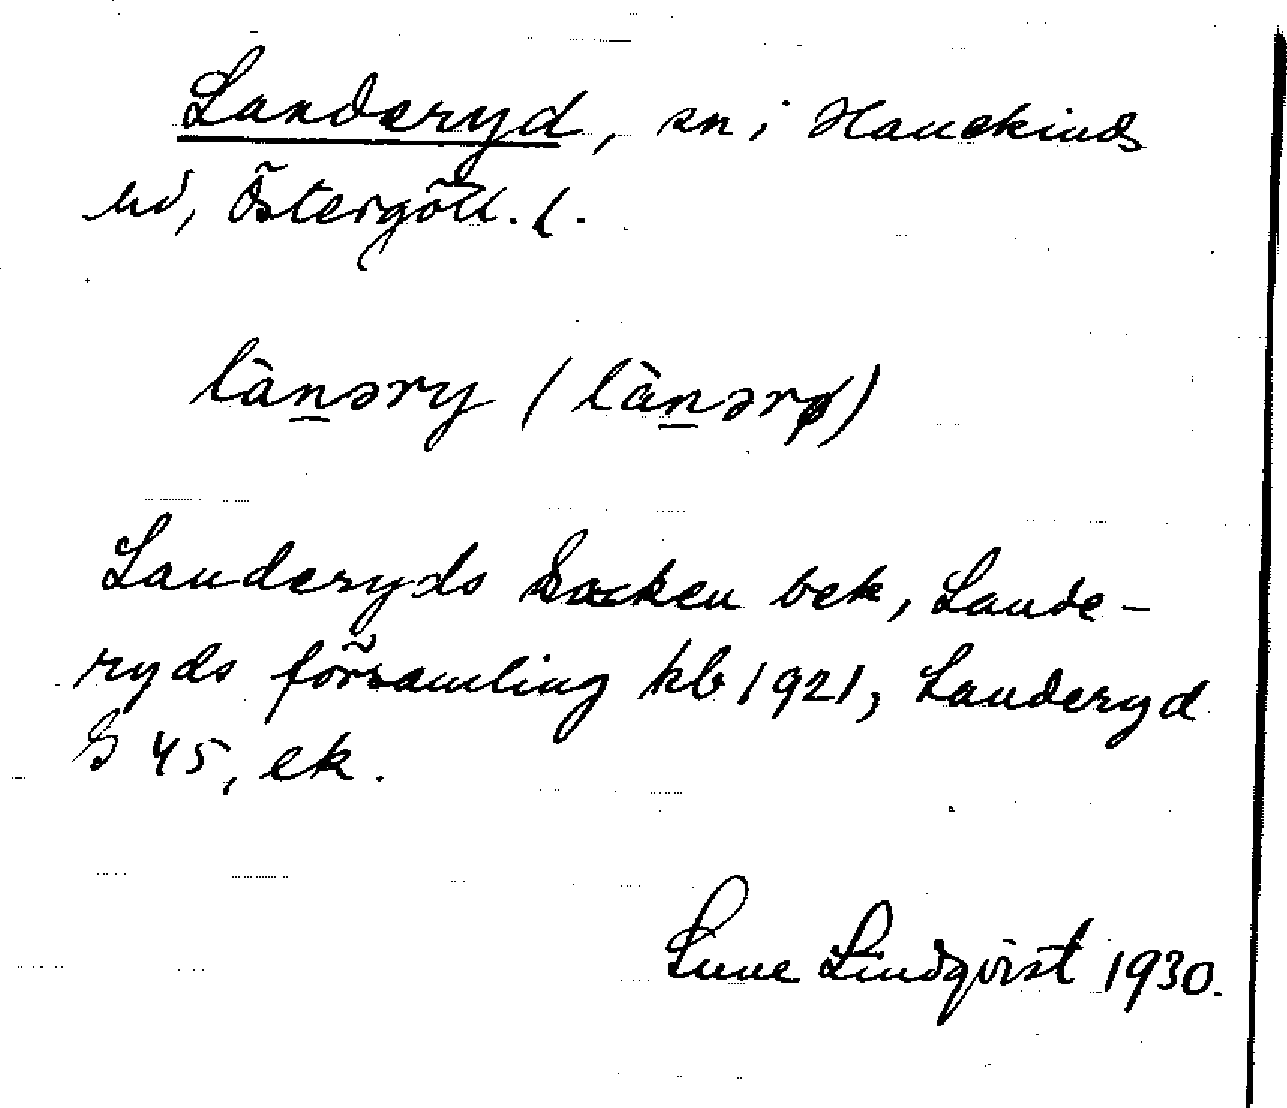 Landeryd, sn i Hanekinds
hd, Östergötl. l.
lànəry (lànərø)
Landeryds Socken bek, Lande-
ryds församling kb 1921, Landeryd
S 45, ek.
Sune Lindqvist 1930.